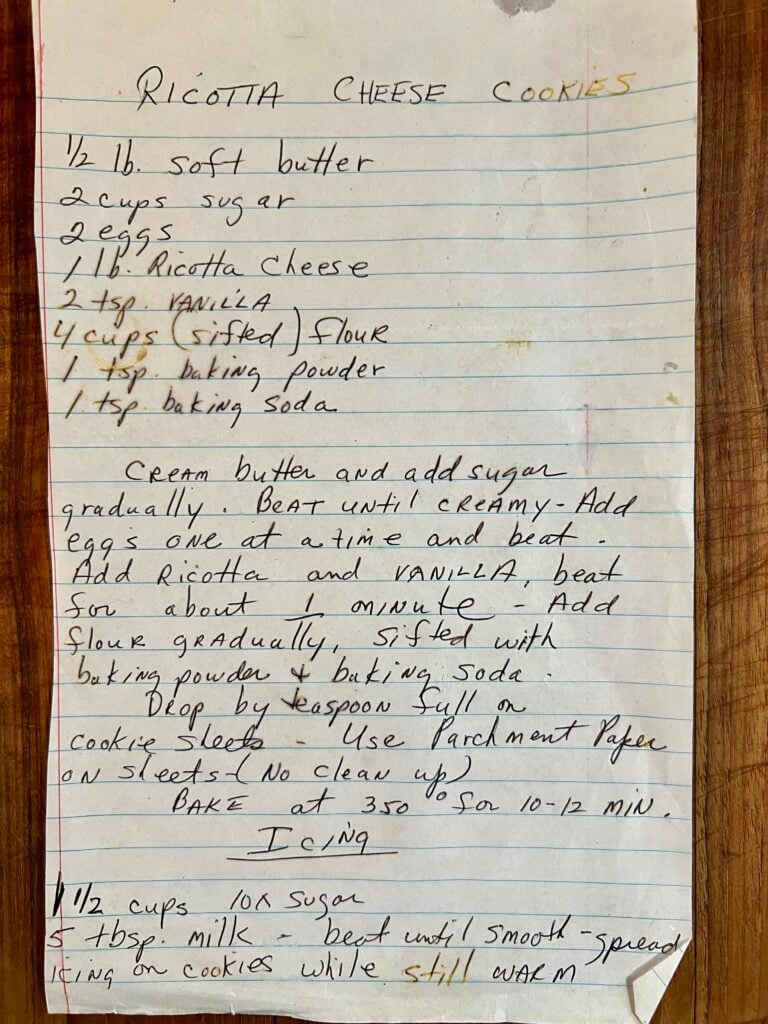 RICOTTA CHEESE COOKIES
1/2 lb. soft butter
2 cups sugar
2 eggs
1 lb. Ricotta Cheese
2 tsp. VANILLA
4 cups (sifted) flour
1 tsp. baking powder
1 tsp. baking soda
CREAM butter and add sugar
gradually. BEAT UNTIL CREAMY - Add
eggs ONE at a time and beat.
Add Ricotta and VANILLA, beat
for about 1 minute - Add
flour gradually, sifted with
baking powder + baking soda.
Drop by teaspoon full on
cookie sheets - Use Parchment Paper
on sheets - (No clean up)
BAKE at 350° for 10-12 min.
Icing
1 1/2 cups 10X sugar
5 tbsp. milk - beat until smooth - spread
icing on cookies while still WARM